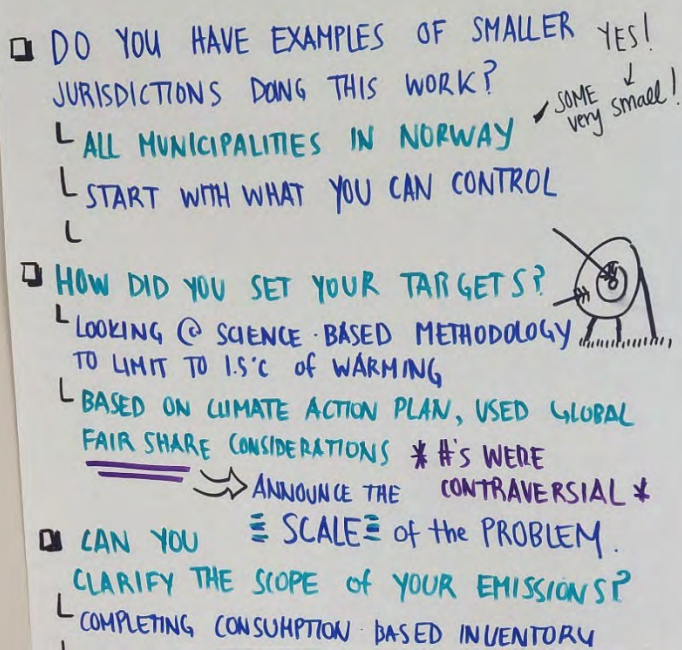 DO YOU HAVE EXAMPLES OF SMALLER YES!
JURISDICTIONS DOING THIS WORK?
SOME
very small!
ALL MUNICIPALITIES IN NORWAY
START WITH WHAT YOU CAN CONTROL
HOW DID YOU SET YOUR TARGETS?
LOOKING @ SCIENCE-BASED METHODOLOGY
TO LIMIT TO 1.5°C of WARMING
BASED ON CLIMATE ACTION PLAN, USED GLOBAL
FAIR SHARE CONSIDERATIONS * #'S WERE
CONTRAVERSIAL *
ANNOUNCE THE
SCALE of the PROBLEM.
CAN YOU
CLARIFY THE SCOPE of YOUR EMISSIONS?
COMPLETING CONSUMPTION-BASED INVENTORY